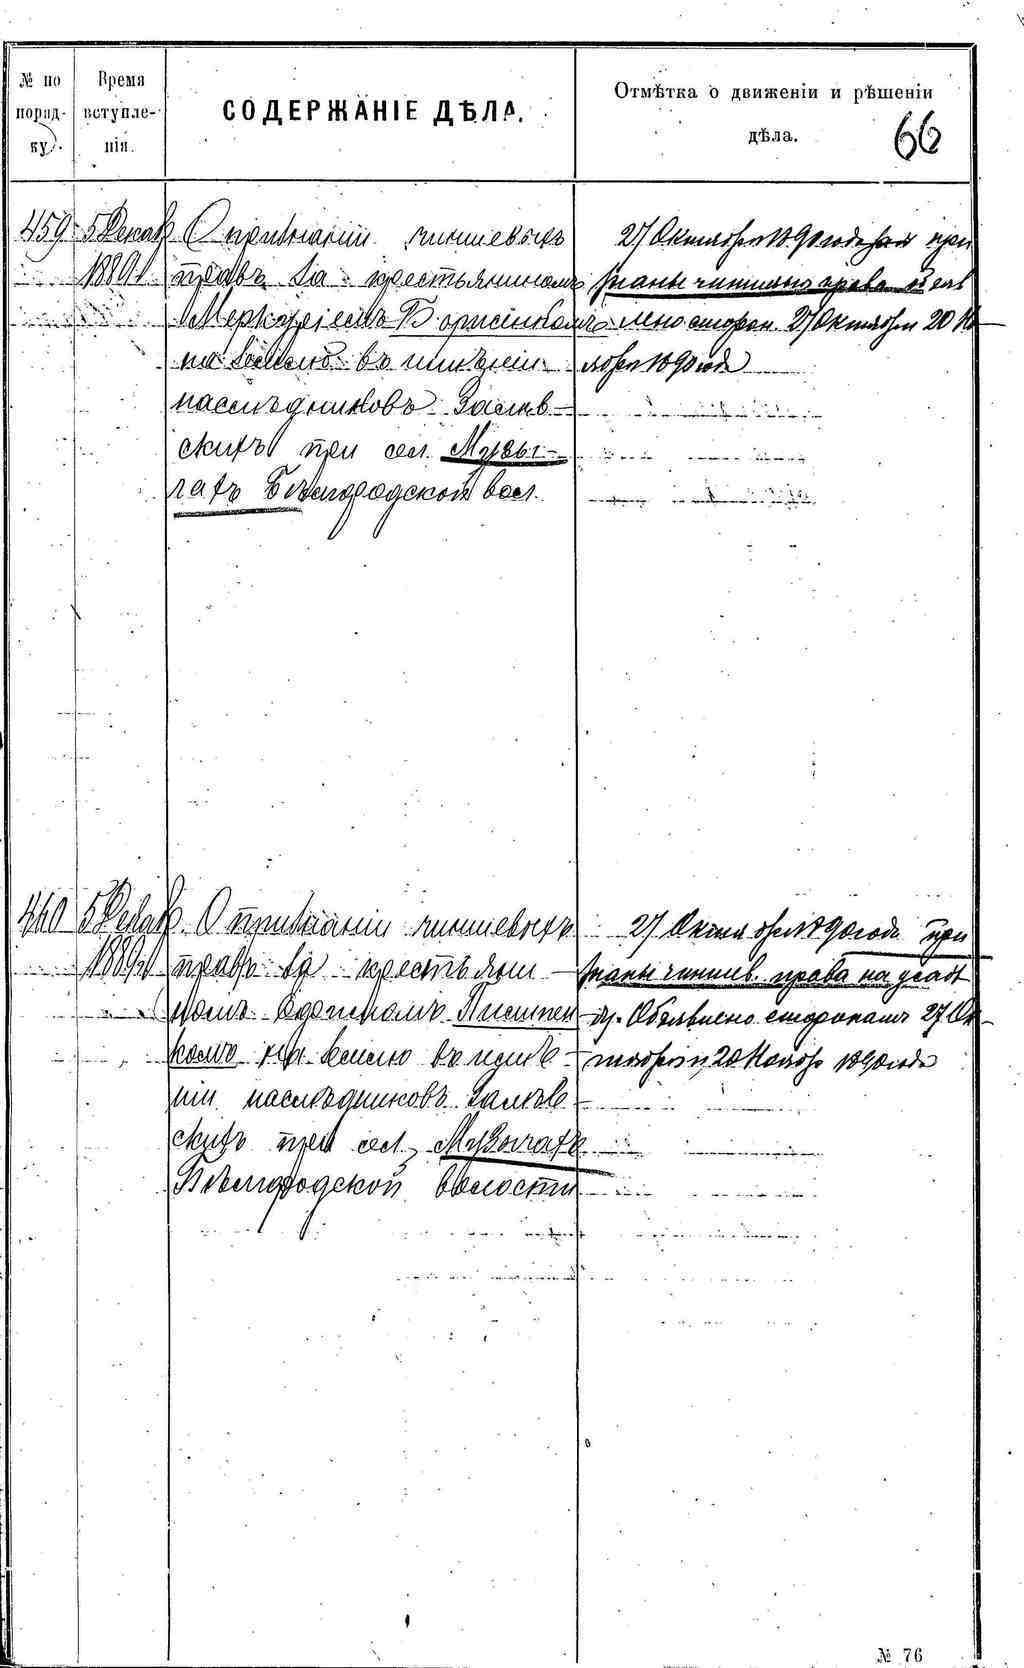 № по порядку.
Время вступленія.
СОДЕРЖАНІЕ ДѢЛА.
Отмѣтка о движеніи и рѣшеніи
дѣла.
66
459
5 Декаб
1889 г.
О признаніи чиншевыхъ
правъ за крестьяниномъ
Меркуріемъ Борисенкомъ
на землю въ имѣніи
наслѣдниковъ Залѣв-
скихъ при сел. Музы-
чахъ Бѣлгородской вол.
27 Октября 1890 года при
знаны чиншев. права объяв
лено сторон. 27 Октября 20 Но
ября 1890 года
460
5 Декаб.
1889 г.
О признаніи чиншевыхъ
правъ за крестьяни-
номъ Писмен
комъ на землю въ имѣ-
ніи наслѣдниковъ Залѣв-
скихъ при сел. Музычахъ
Бѣлгородской волости
27 Октября 1890 года при
знаны чиншев. права на усадь
бу. Объявлено сторонамъ 27 Ок-
тября и 20 Ноябр 1890 года
№ 76